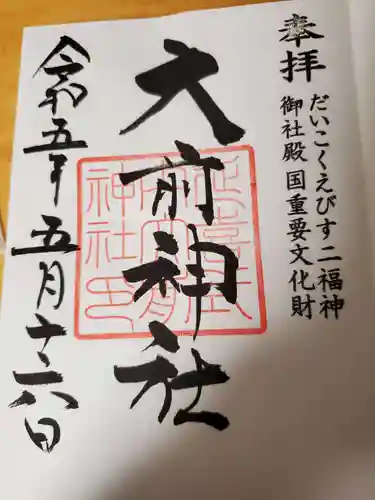 奉拝
だいこくえびす二福神
御社殿国重要文化財
大前神社
延喜式内大前神社印
令和五年五月十六日